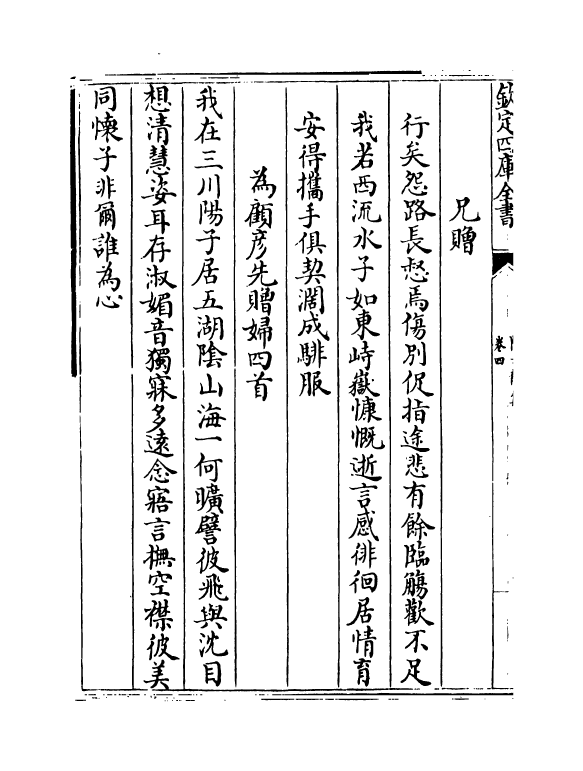 欽定四庫全書
卷四
兄贈
行矣怨路長惄焉傷別促指途悲有餘臨觴歡不足
我若西流水子如東峙嶽慷慨逝言感徘徊居情育
安得攜手俱契濶成騑服
為顧彦先贈婦四首
我在三川陽子居五湖陰山海一何曠譬彼飛與沈目
想清慧姿耳存淑媚音獨寐多遠念寤言撫空襟彼美
同懐子非爾誰為心